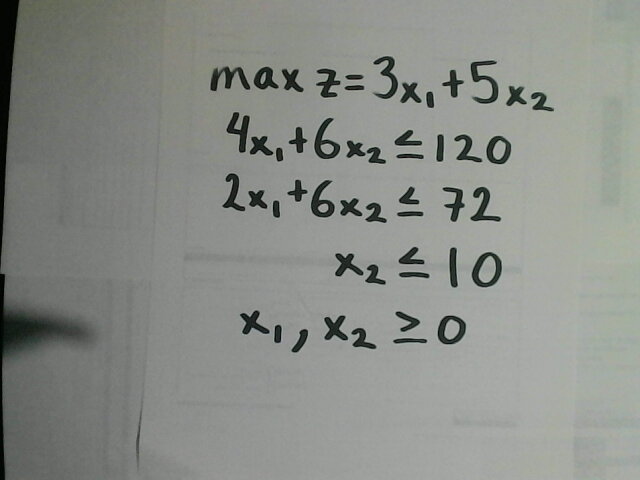 max z=3x₁+5x₂
4x₁+6x₂≤120
2x₁+6x₂≤72
x₂≤10
x₁,x₂≥0